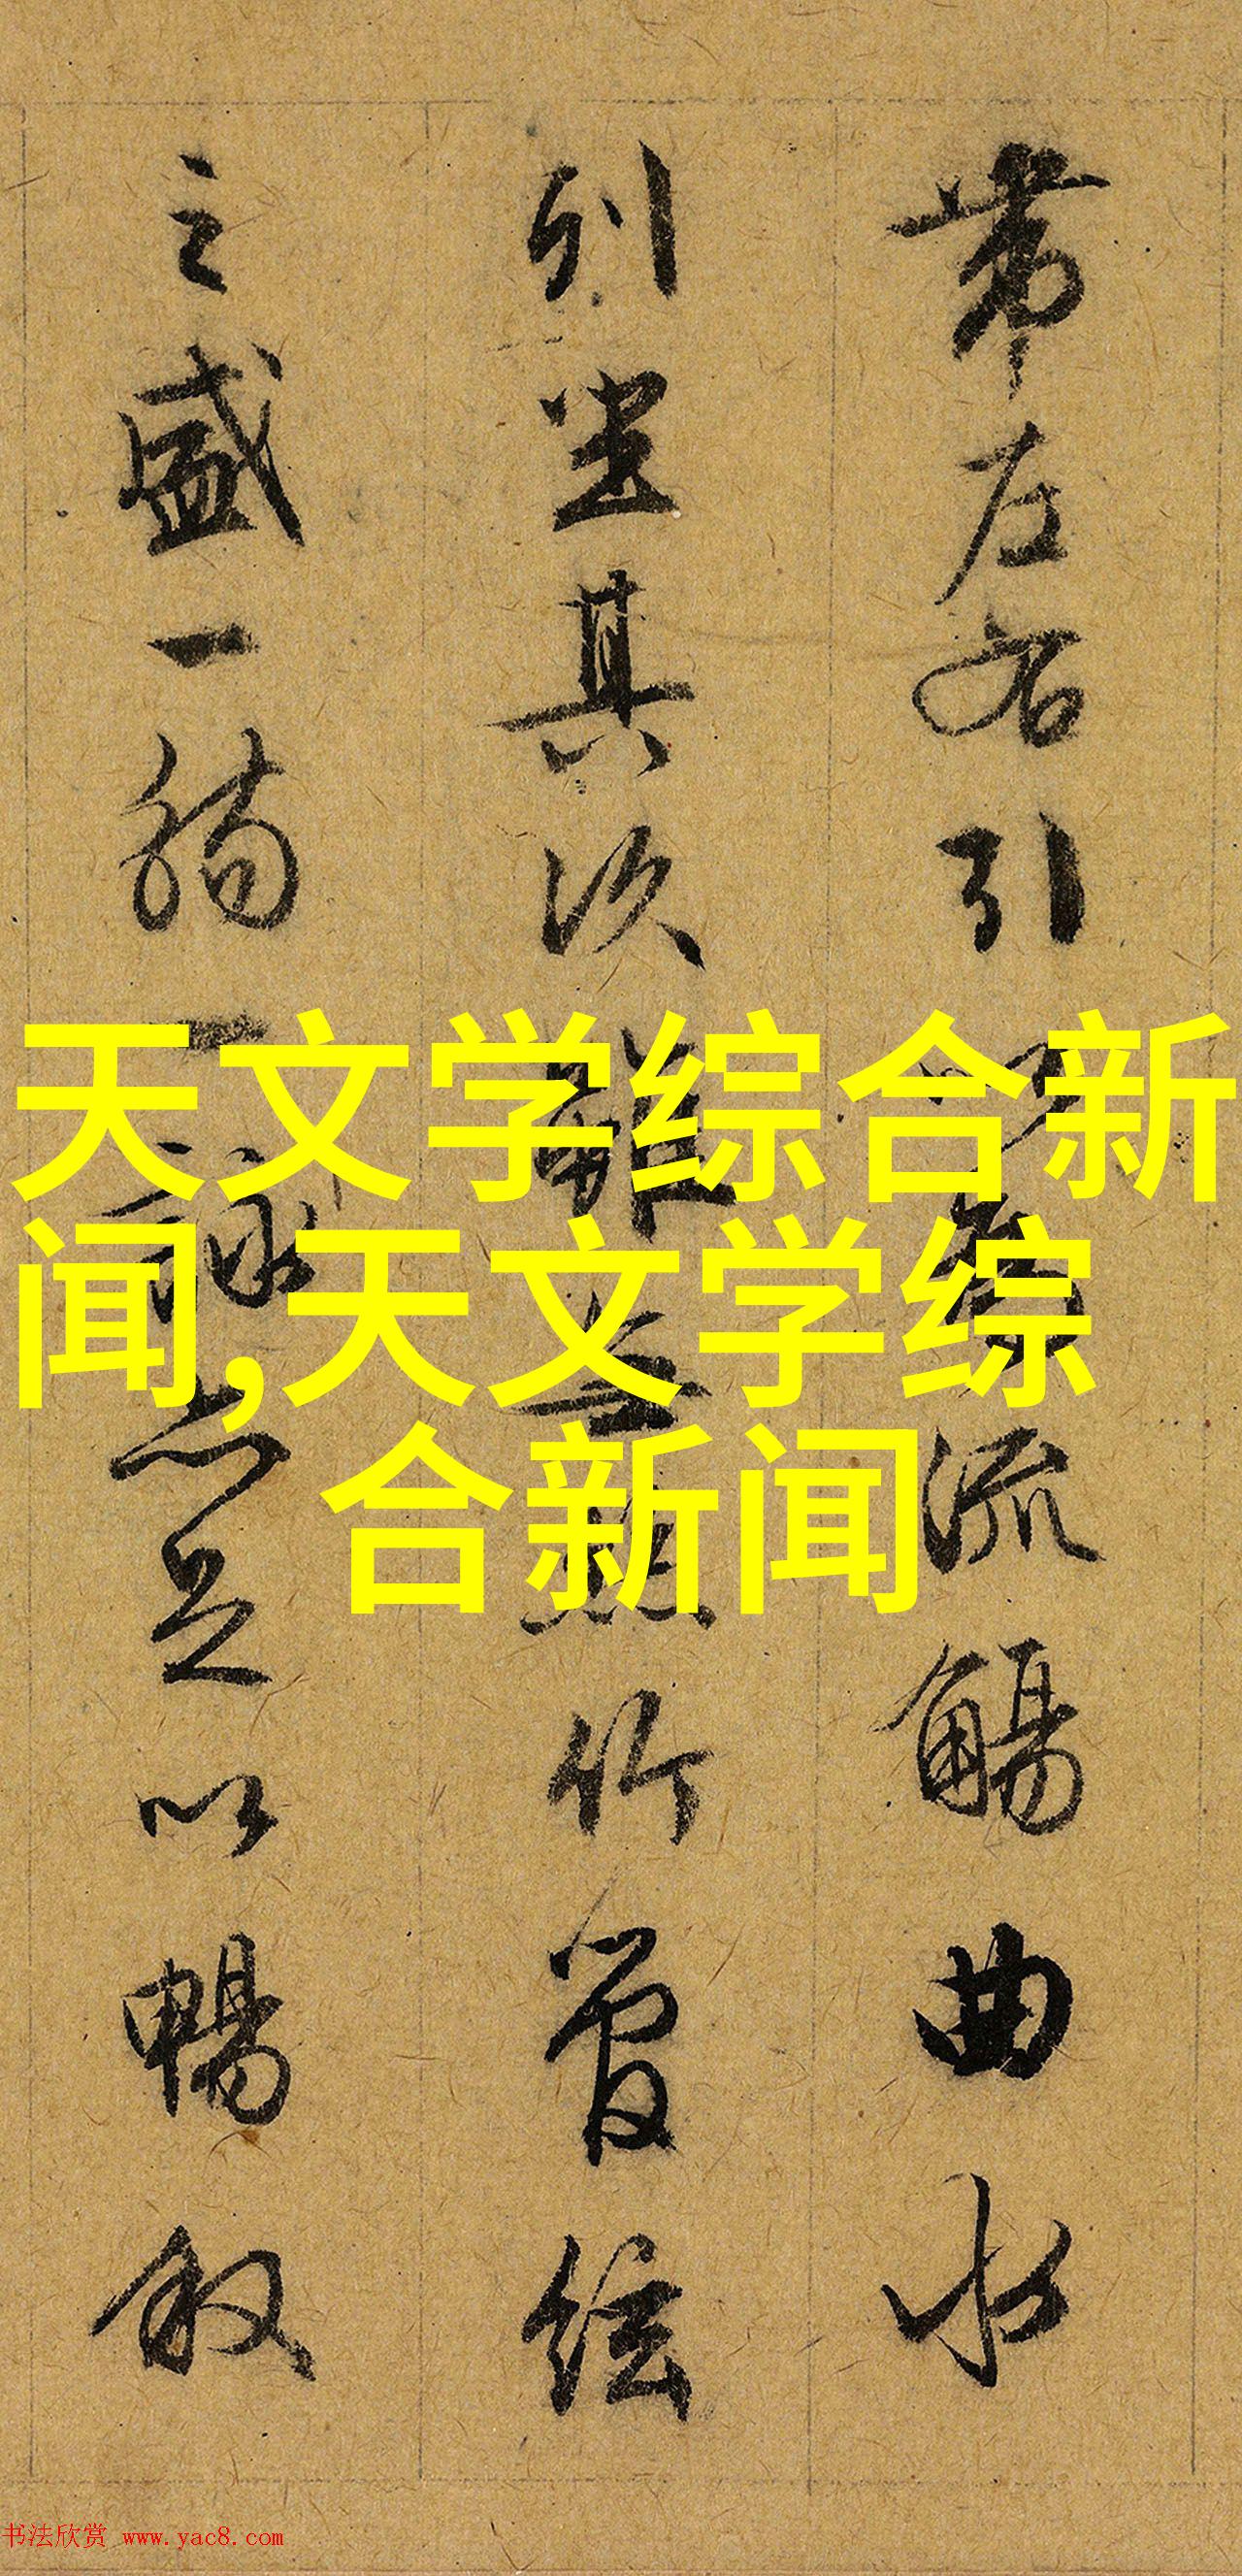 帶左右引以為流觴曲水
列坐其次雖無絲竹管絃
之盛一觴一詠亦足以暢敘
天文学综合新
闻,天文学综
合新闻
书法欣赏 www.yac8.com